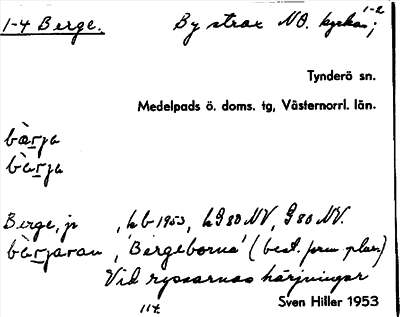 1-4 Berge. By strax NO. kyrkan; 1-2
Tynderö sn.
Medelpads ö. doms. tg, Västernorrl. län.
bærja
bàrja
Berge, jr , kb 1953, kG 80 NV, G 80 NV.
bàrjaran, 'Bergeborna' (best. form plur.)
Vid ryssarnas härjningar
114.
Sven Hiller 1953